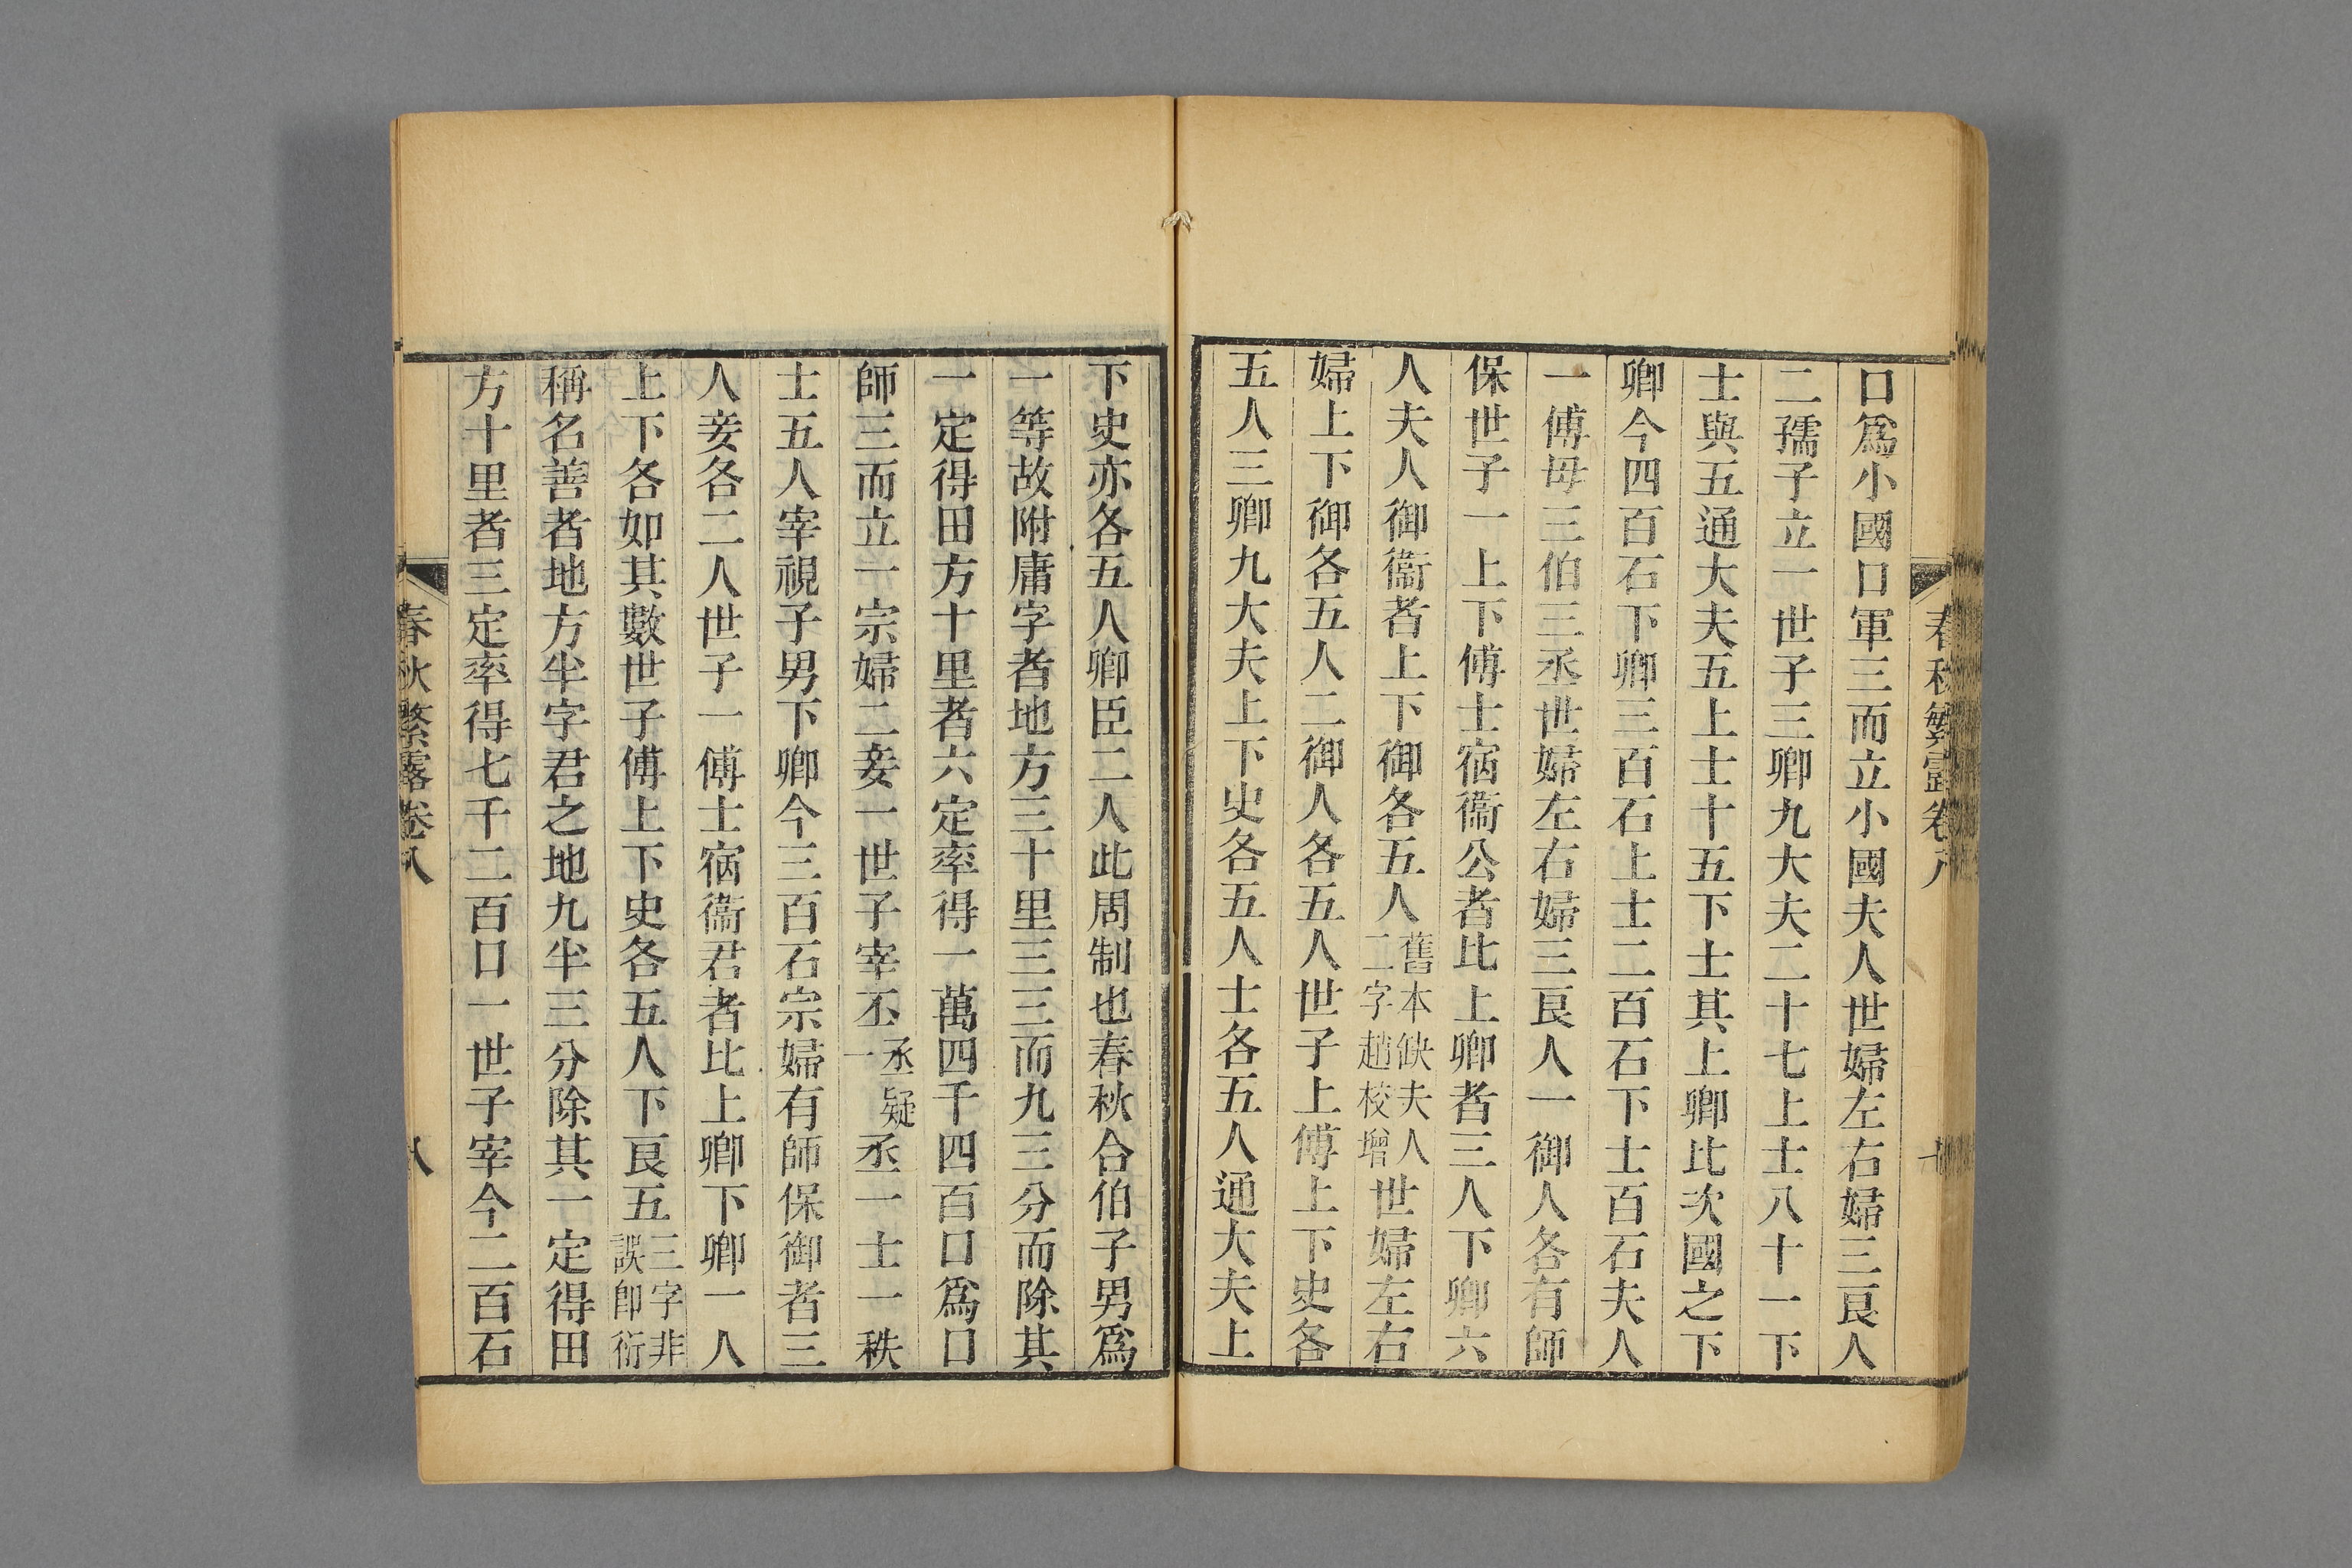 口爲小國口軍三而立小國夫人世婦左右婦三良人
二孺子立一世子三卿九大夫二十七上士八十一下
士與五通大夫五上士十五下士其上卿比次國之下
卿今四百石下卿三百石上士二百石下士百石夫人
一傅母三伯三丞世婦左右婦三良人一御人各有師
保世子一上下傅士宿衞公者比上卿者三人下卿六
人夫人御衞者上下御各五人舊本缺夫人二字趙校增世婦左右
婦上下御各五人二御人各五人世子上傅上下史各
五人三卿九大夫上下史各五人士各五人通大夫上
下史亦各五人卿臣二人此周制也春秋合伯子男爲
一等故附庸字者地方三十里三三而九三分而除其
一定得田方十里者六定率得一萬四千四百口爲口
師三而立一宗婦二妾一世子宰丕丞疑一丞一士一秩
士五人宰視子男下卿今三百石宗婦有師保御者三
人妾各二人世子一傅士宿衞君者比上卿下卿一人
上下各如其數世子傅上下史各五人下良五三字非誤卽衍
稱名善者地方半字君之地九半三分除其一定得田
方十里者三定率得七千二百口一世子宰今二百石
春秋繁露卷八
八